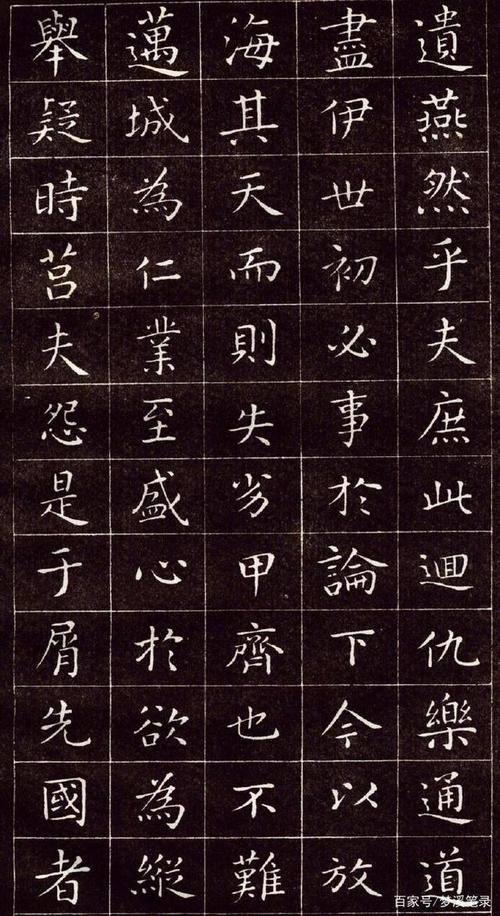 遺燕然乎夫庶此迴仇樂通道
盡伊世初必事於論下今以放
海其天而則失劣甲齊也不難
邁城為仁業至盛心於欲為縱
舉疑時莒夫怨是于屑先國者
百家号/梦溪笔录